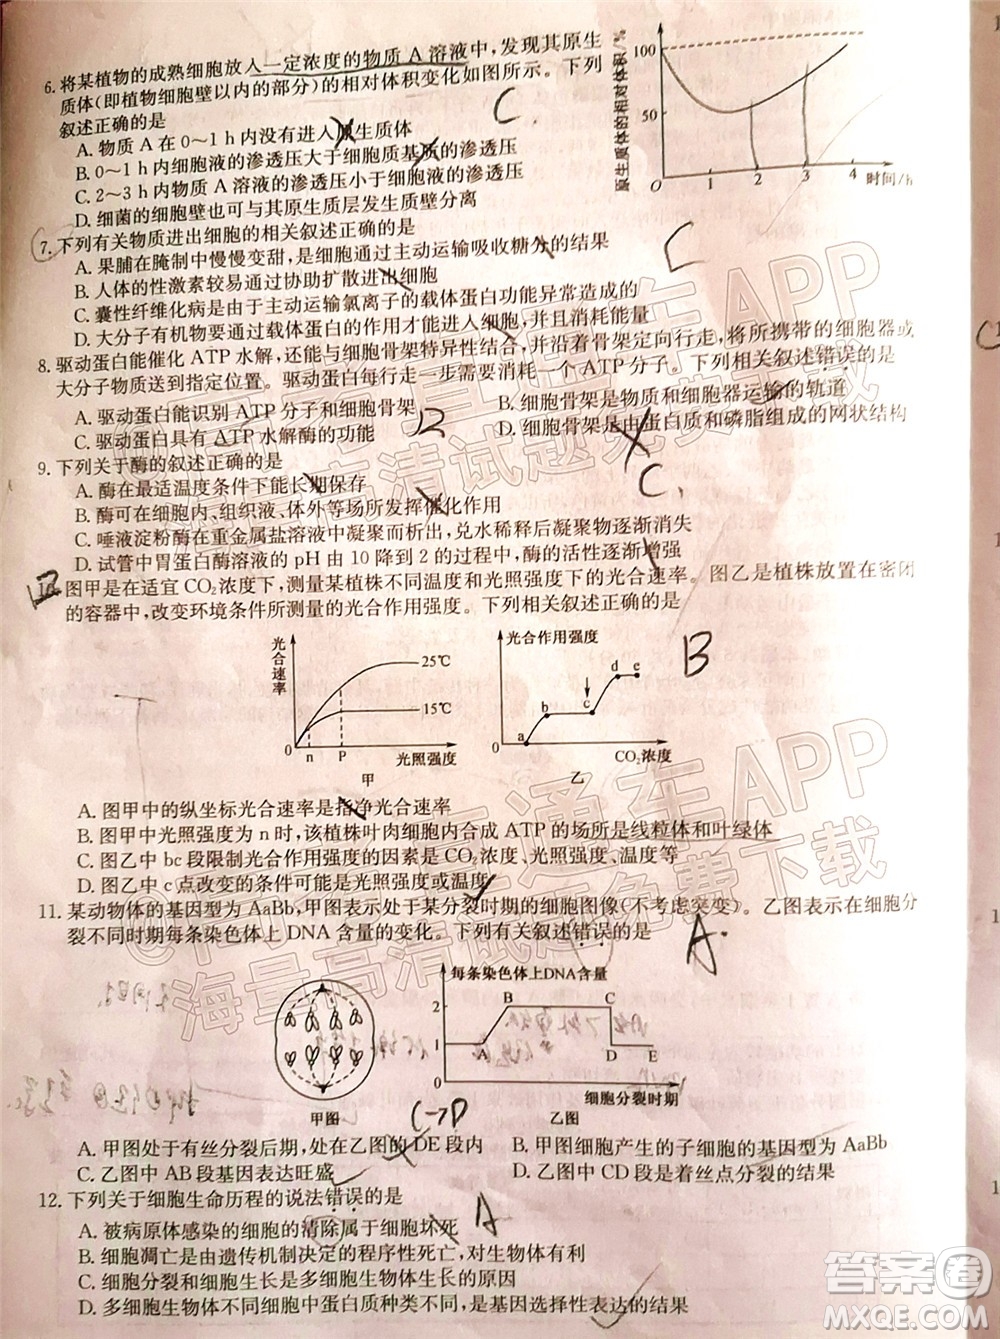 6. 将某植物的成熟细胞放入一定浓度的物质 A 溶液中,发现其原生
质体(即植物细胞壁以内的部分)的相对体积变化如图所示。下列
叙述正确的是
C.
A. 物质 A 在 0～1 h 内没有进入原生质体
B. 0～1 h 内细胞液的渗透压大于细胞质基质的渗透压
C. 2～3 h 内物质 A 溶液的渗透压小于细胞液的渗透压
D. 细菌的细胞壁也可与其原生质层发生质壁分离
原生质体的相对体积/%
100
50
0 1 2 3 4 时间/h
7. 下列有关物质进出细胞的叙述正确的是
C
A. 果脯在腌制中慢慢变甜,是细胞通过主动运输吸收糖分的结果
B. 人体的性激素较易通过协助扩散进出细胞
C. 囊性纤维化病是由于主动运输氯离子的载体蛋白功能异常造成的
D. 大分子有机物要通过载体蛋白的作用才能进入细胞,并且要消耗能量
8. 驱动蛋白能催化 ATP 水解,还能与细胞骨架特异性结合,并沿着骨架定向行走,将所携带的细胞器或
大分子物质送到指定位置。驱动蛋白每行走一步需要消耗一个 ATP 分子。下列相关叙述错误的是
A. 驱动蛋白能识别 ATP 分子和细胞骨架 B. 细胞骨架是物质和细胞器运输的轨道
C. 驱动蛋白具有 ATP 水解酶的功能 D. 细胞骨架是由蛋白质和磷脂组成的网状结构
9. 下列关于酶的叙述正确的是
C.
A. 酶在最适温度条件下能长期保存
B. 酶可在细胞内、组织液、体外等场所发挥催化作用
C. 唾液淀粉酶在重金属盐溶液中凝聚而析出,兑水稀释后凝聚物逐渐消失
D. 试管中胃蛋白酶溶液的 pH 由 10 降到 2 的过程中,酶的活性逐渐增强
图甲是在适宜 CO₂浓度下,测量某植株不同温度和光照强度的光合速率。图乙是植株放置在密闭
的容器中,改变环境条件所测量的光合作用强度。下列相关叙述正确的是
B
光合速率
25℃
15℃
0 n P 光照强度
甲
光合作用强度
a b c d e
0 CO₂浓度
乙
A. 图甲中的纵坐标光合速率是指净光合速率
B. 图甲中光照强度为 n 时,该植株叶肉细胞内合成 ATP 的场所是线粒体和叶绿体
C. 图乙中 bc 段限制光合作用强度的因素是 CO₂浓度、光照强度、温度等
D. 图乙中 c 点改变的条件可能是光照强度或温度
11. 某动物体的基因型为 AaBb,甲图表示处于某分裂时期的细胞图像(不考虑突变)。乙图表示在细胞分
裂不同时期每条染色体上 DNA 含量的变化。下列有关叙述错误的是
A.
甲图
每条染色体上DNA含量
2
1
0
A B C D E
细胞分裂时期
乙图
C→D
A. 甲图处于有丝分裂后期,处在乙图的 DE 段内 B. 甲图细胞产生的子细胞的基因型为 AaBb
C. 乙图中 AB 段基因表达旺盛 D. 乙图中 CD 段是着丝点分裂的结果
12. 下列关于细胞生命历程的说法错误的是
A
A. 被病原体感染的细胞的清除属于细胞坏死
B. 细胞凋亡是由遗传机制决定的程序性死亡,对生物体有利
C. 细胞分裂和细胞生长是多细胞生物体生长的细胞学基础
D. 多细胞生物体不同细胞中蛋白质种类不完全相同,是基因选择性表达的结果
答案圈
MXQE.COM